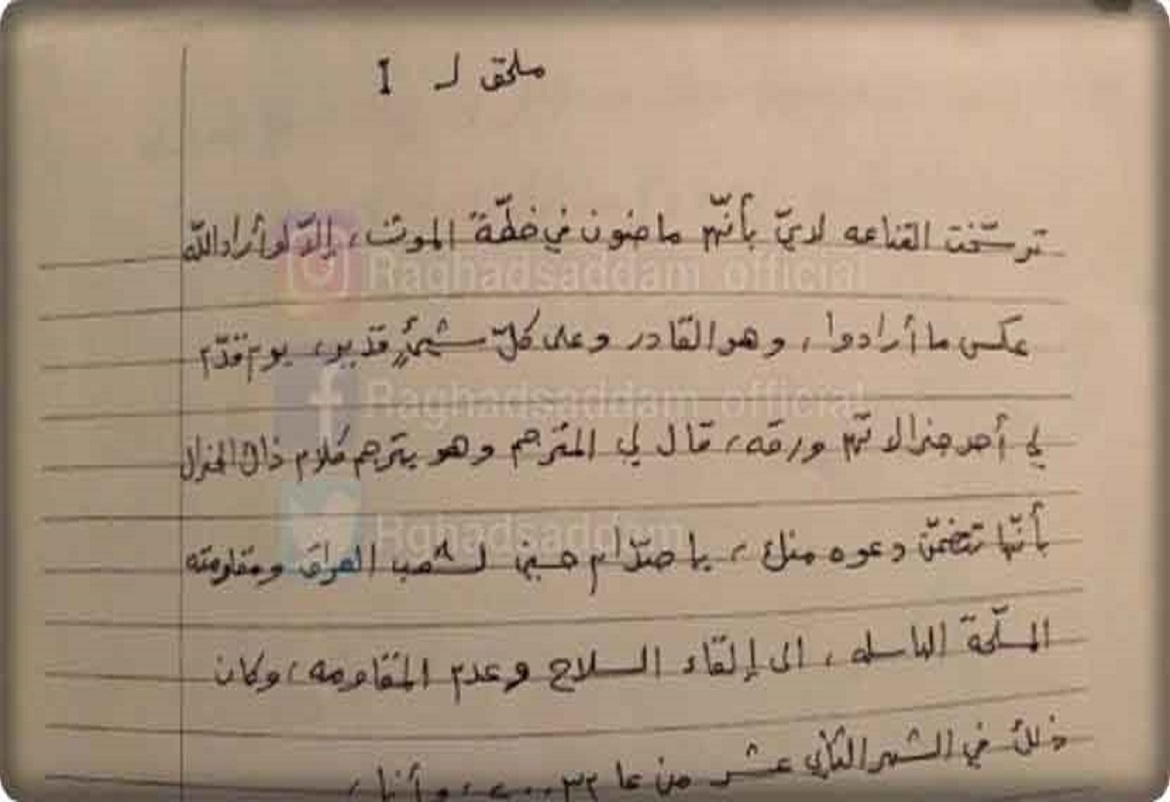 ملحق لـ I
ترسّخت القناعه لديّ بأنّهم ماضون في خطّة الموت، إلاّ لو أراد اللّه
عكس ما أرادوا، وهو القادر وعلى كلّ شيئٍ قدير، يوم قدّم
لي أحد جنرالاتهم ورقه، قال لي المترجم وهو يترجم كلام ذاك الجنرال
بأنّها تتضمّن دعوه منك، يا صدّام حسين لشعب العراق ومقاومته
المسلّحة الباسله، الى إلقاء السلاح وعدم المقاومه، وكان
ذلك في الشهر الثاني عشر من عا وأنا،
Raghadsaddam_official
Raghadsaddam_official
Rghadsaddam